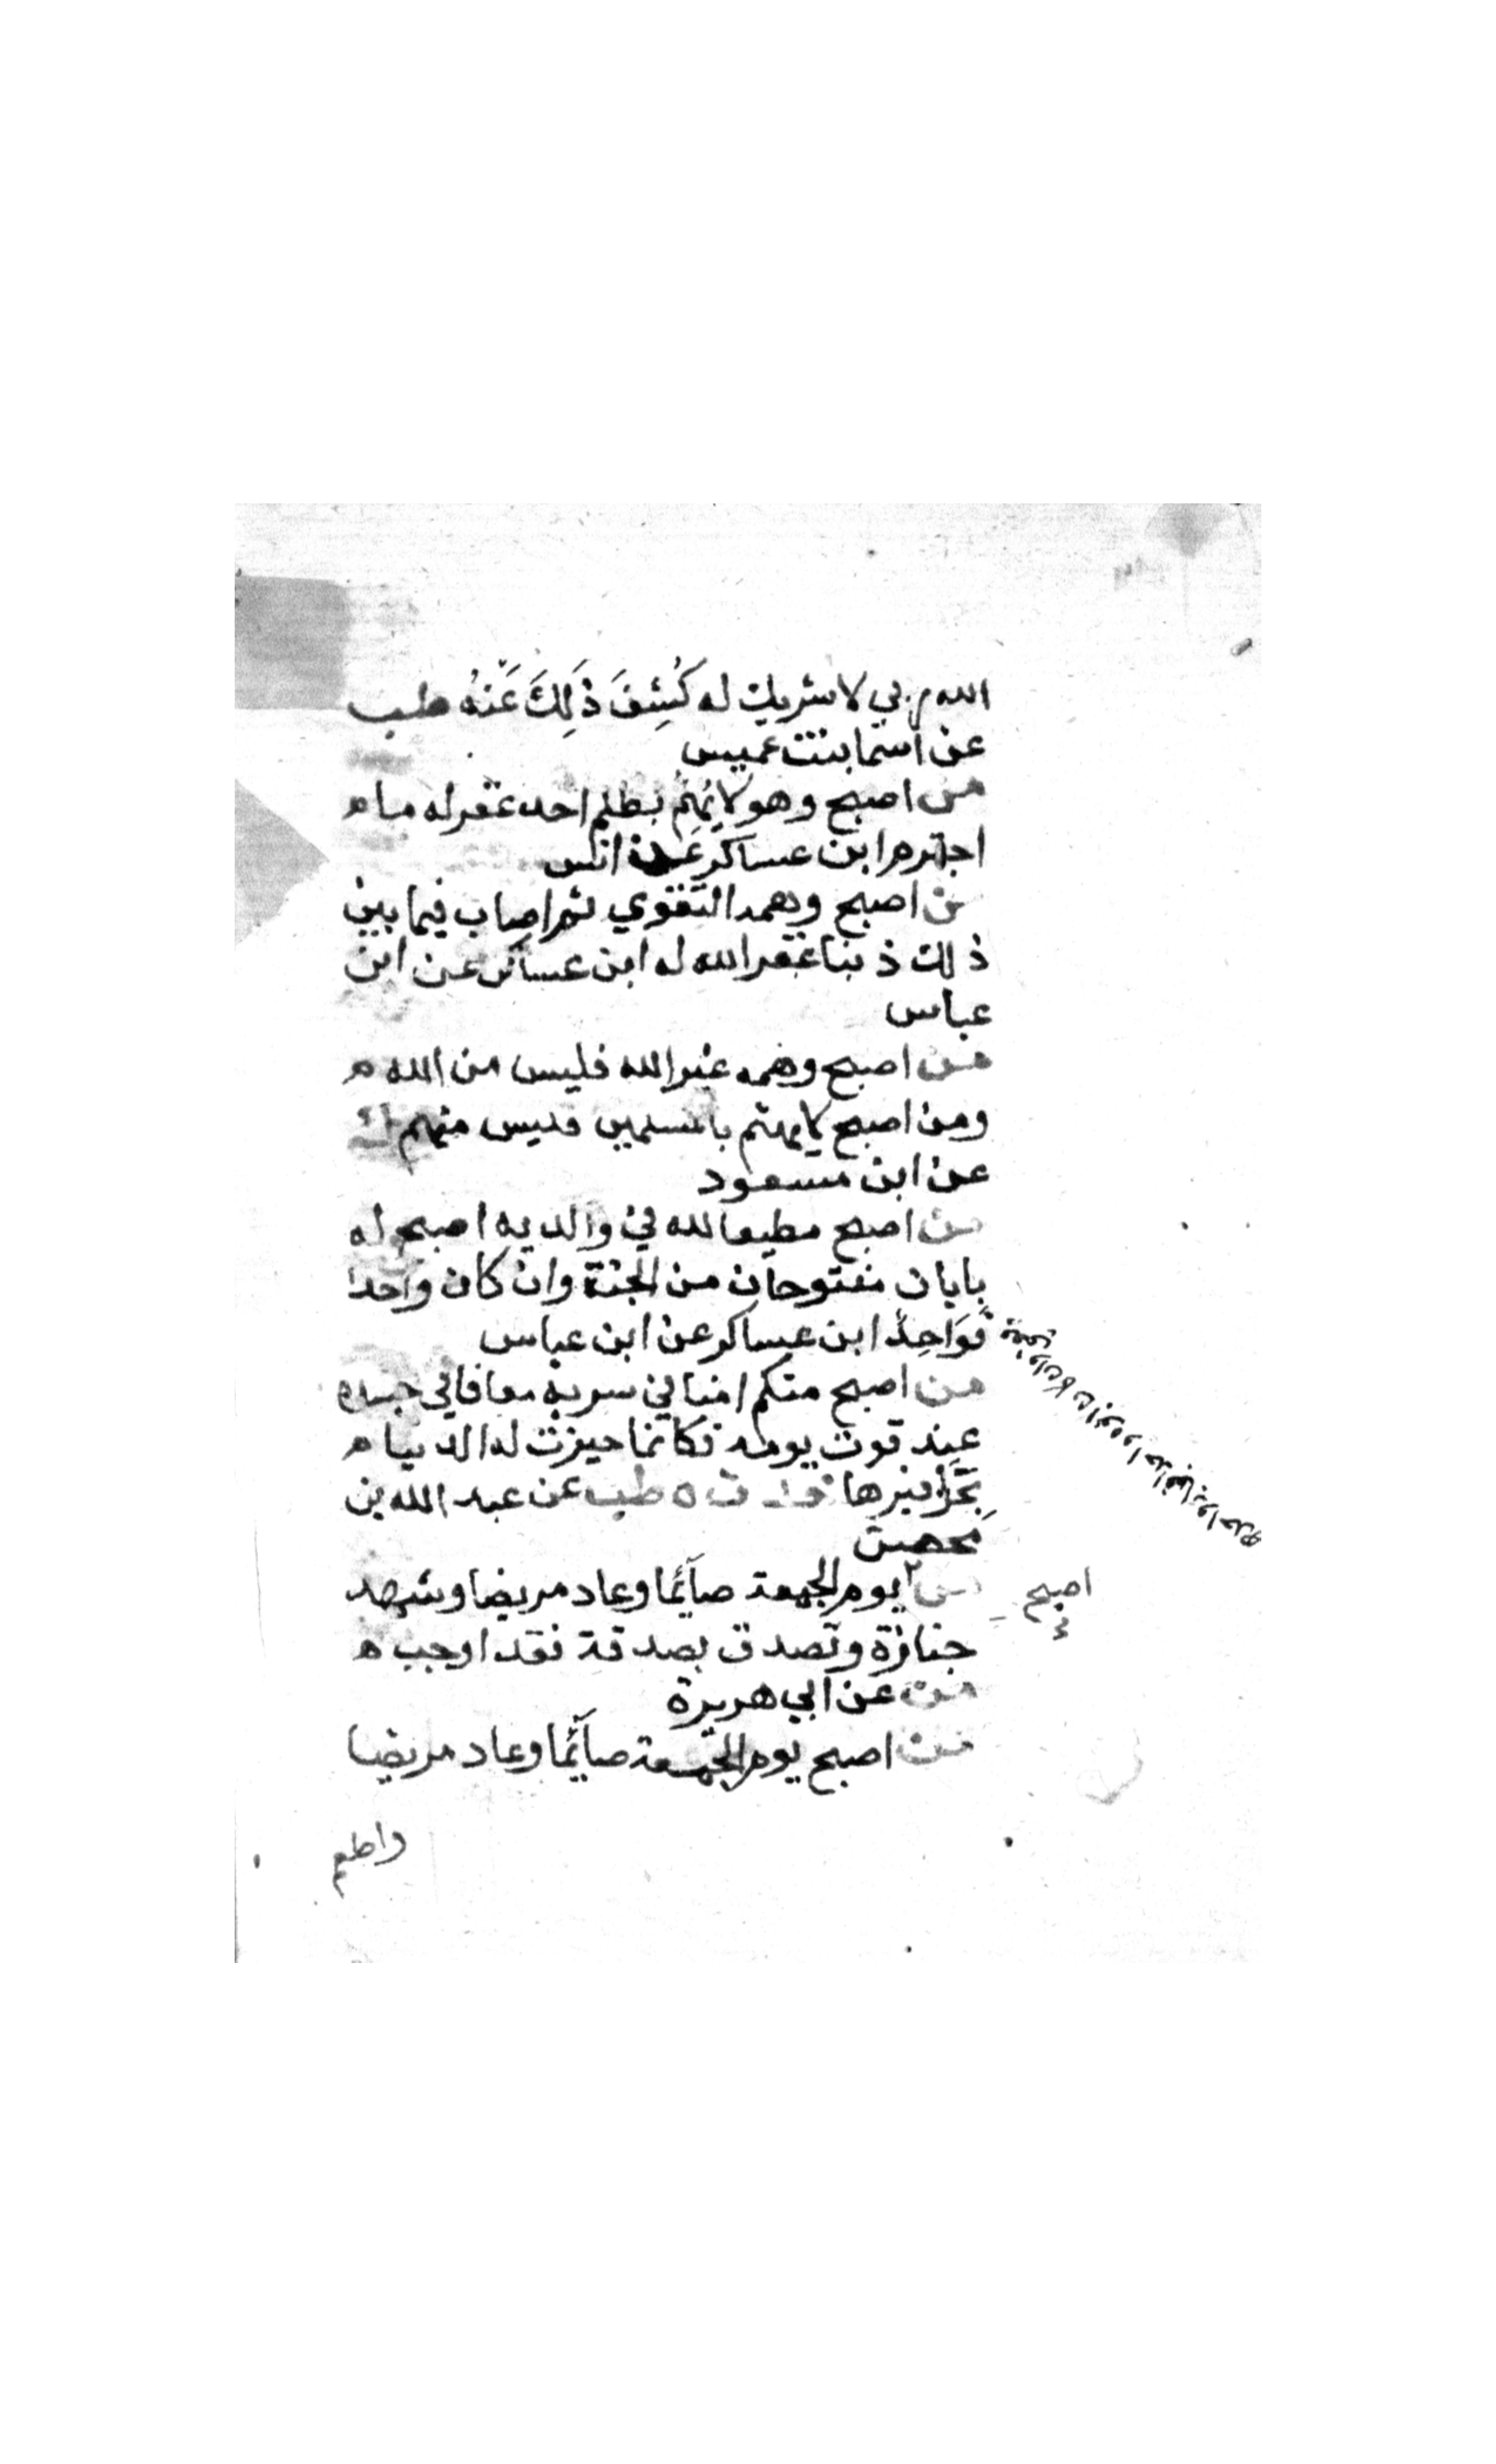 الله ربي لا شريك له كُشِفَ ذَلِكَ عَنْهُ طب
عن اسما بنت عميس
من اصبح وهو لا يَهُمُّ بظلم احد غفر له ما ه
اجترم ابن عساكر عَن انس
من اصبح وهمه التقوي ثم اصاب فيما بين
ذلك ذنبا غفر الله له ابن عساكر عن ابن
عباس
من اصبح وهمه غير الله فليس من الله ه
ومن اصبح لا يهتم بالمسلمين فليس منهم ك
عن ابن مسعود
من اصبح مطيعا لله في والديه اصبح له
بابان مفتوحان من الجنة وان كان واحدا
فَوَاحِدٌ ابن عساكر عن ابن عباس
من اصبح منكم امنا في سربه معافا في جسده
عنده قوت يومه فكانما حيزت له الدنيا ه
بِحَذافيرها خد ت ه طب عن عبد الله بن
محصن
من يوم الجمعة صآئما وعاد مريضا وشهد
اصبح
جنازة وتصدق بصدقة فقد اوجب ه
عن ابي هريرة
من اصبح يوم الجمعة صآئما وعاد مريضا
واطعم